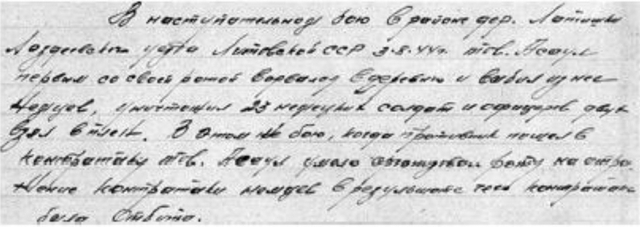 В наступательном бою в районе дер. Латишки
Лаздееваси уезда Литовской ССР 3.8.44г. тов. Асаул
первым со своей ротой ворвался в деревню и выбил из нее
немцев, уничтожил 23 немецких солдат и офицеров двух
взял в плен. В этом же бою, когда противник пошел в
контратаку тов. Асаул умело организовал роту на отра-
жение контратаки немцев в результате чего контратака
была отбита.